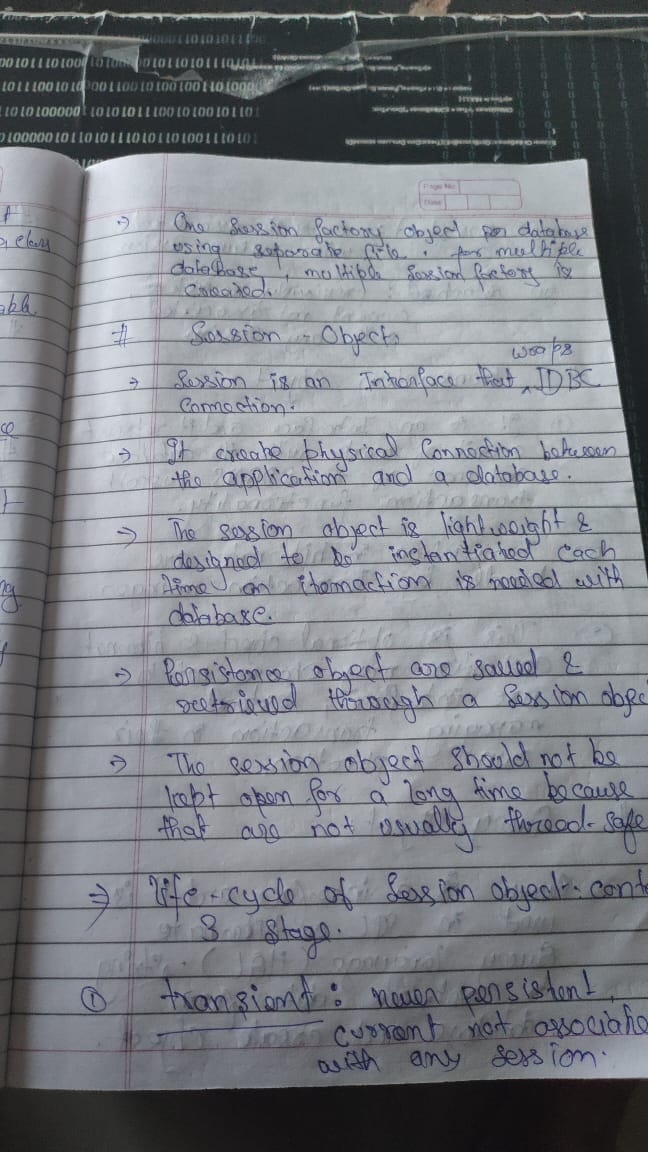 00101110100 01010 0010110101110101
101110010100001100101010010011010000
11010100000110101011100101001011 01
0100000101101011101011010011101 01
Page No.
Date
→ One Session factory object per database
using separate file. for multiple
database, multiple Session factory is
created.
# Session - Object:
wraps
→ Session is an Interface that ^ JDBC
Connection.
→ It create physical Connection between
the application and a database.
→ The session object is lightweight &
designed to be instantiated each
time an iternaction is needed with
database.
→ Persistance object are saved &
reetrieved through a Session objec
→ The session object should not be
kept open for a long time because
that are not usually thread-safe
⇒ life-cycle of Session object:- cont
3 stage.
① transient: never persistent,
current not associate
with any session.